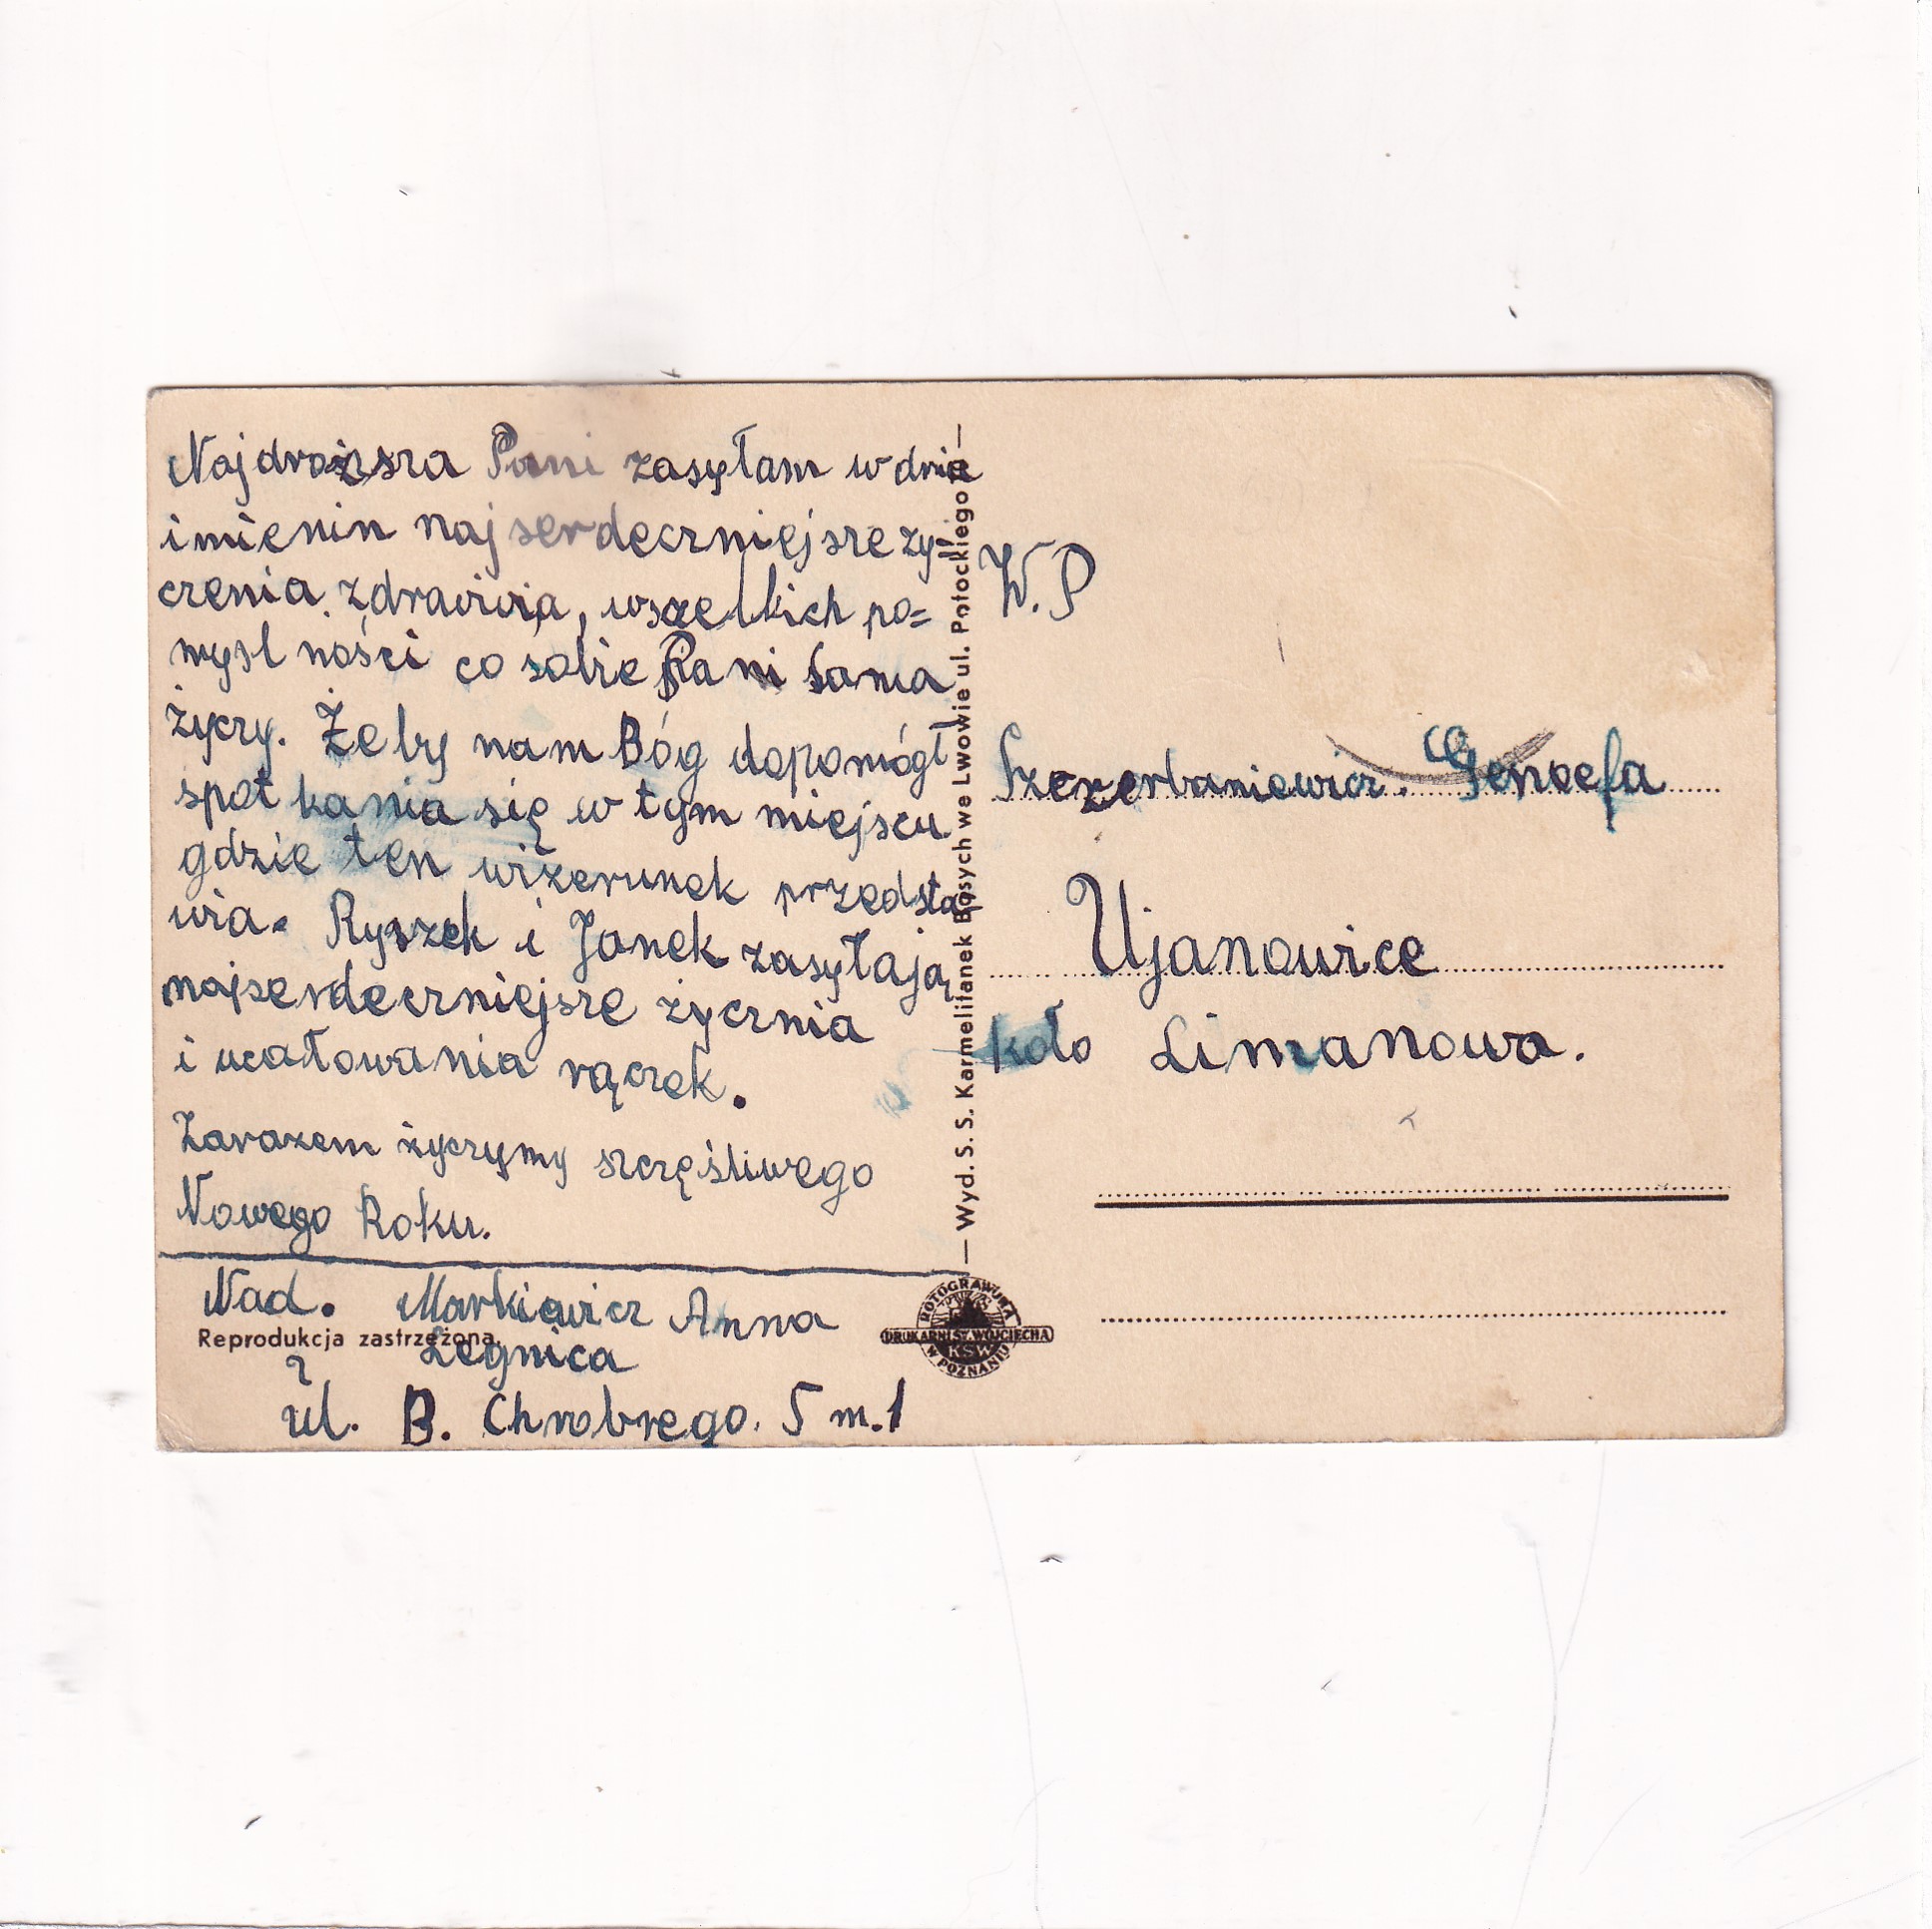 Najdroższa Pani zasyłam w dnie
imienin najserdeczniejsze ży-
czenia zdrowia, wszelkich po=
myśl ności co sobie Pani sama
życzy. Żeby nam Bóg dopomógł
spot kania się w tym miejscu
gdzie ten wizerunek przedsta
wia. Ryszek i Janek zasyłają
najserdeczniejsze życznia
i ucałowania rączek.
Zarazem życzymy szczęśliwego
Nowego Roku.
Nad. Markiewicz Anna
Reprodukcja zastrzeżona.
Legnica
ul. B. Chrobrego. 5 m.1
— Wyd. S. S. Karmelitanek Bosych we Lwowie ul. Potockiego
ROTOGRAWURA
DRUKARNI ŚW. WOJCIECHA
KSW
W POZNANIU
W. P
Szczerbaniewicz. Genoefa
Ujanowice
koło Limanowa.